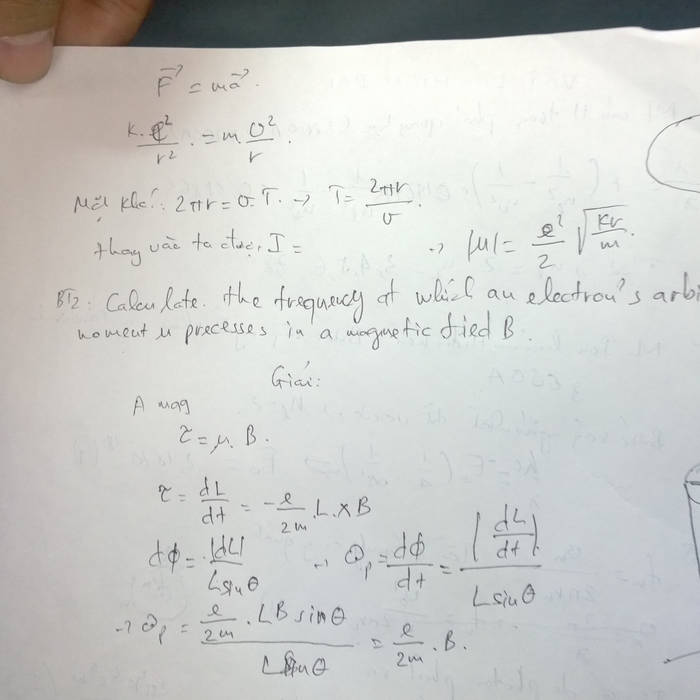 F⃗ = ma⃗.
K. e²/r² . = m. v²/r .
Mặt khác: 2πr = v. T. → T = 2πr/v .
thay vào ta được, I = → |μ| = e²/2 √(kr/m) .
BT2 : Calculate. the frequency at which an electron's arbi
moment μ precesses in a magnetic fied B.
Giải:
A mag
τ = μ. B.
τ = dL/dt = -e/2m . L. × B
dϕ = |dL|/Lsinθ → ω_p = dϕ/dt = |dL/dt|/Lsinθ
→ ω_p = e/2m . LB sinθ / Lsinθ = e/2m . B.